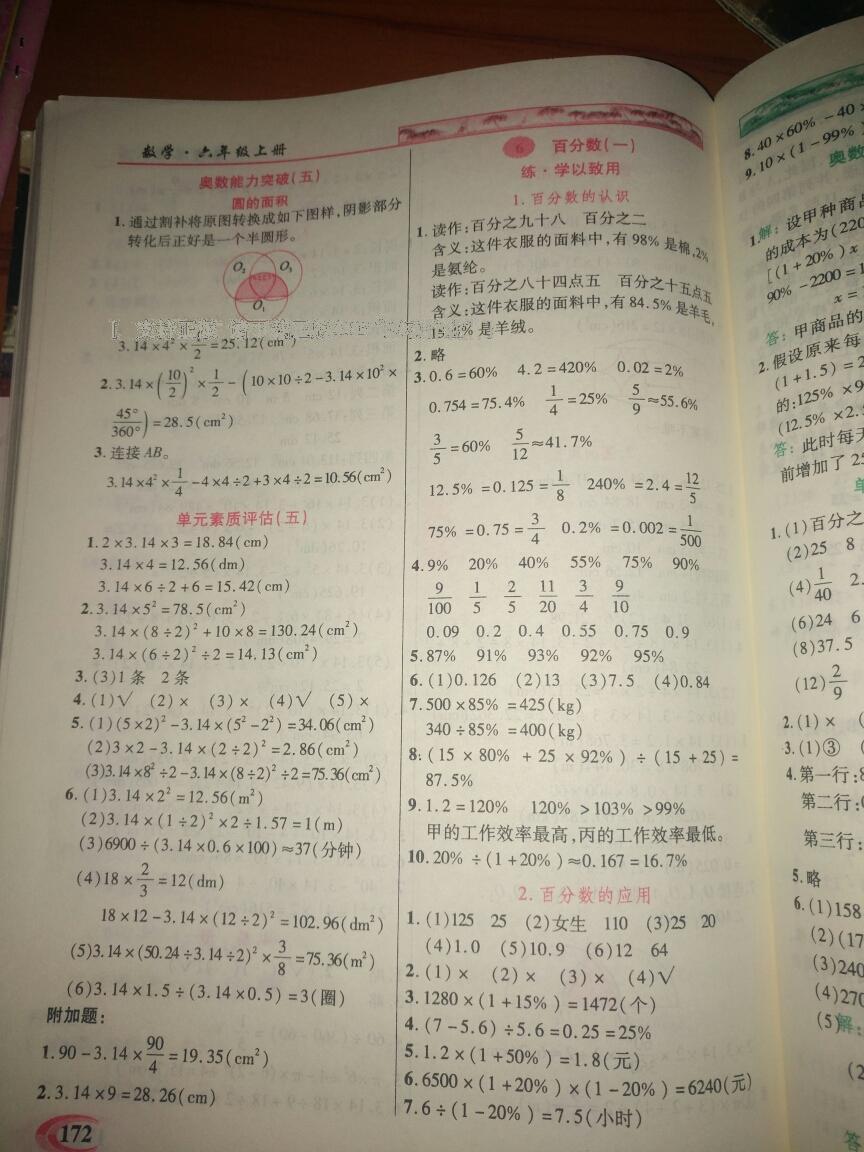 数学·六年级上册
奥数能力突破(五)
圆的面积
1.通过割补将原图转换成如下图样,阴影部分
转化后正好是一个半圆形。
O₂ O₃
O₁
3.14×4²×1/2=25.12(cm²)
2.3.14×(10/2)²×1/2-(10×10÷2-3.14×10²×
45°/360°)=28.5(cm²)
3.连接AB。
3.14×4²×1/4-4×4÷2+3×4÷2=10.56(cm²)
单元素质评估(五)
1.2×3.14×3=18.84(cm)
3.14×4=12.56(dm)
3.14×6÷2+6=15.42(cm)
2.3.14×5²=78.5(cm²)
3.14×(8÷2)²+10×8=130.24(cm²)
3.14×(6÷2)²÷2=14.13(cm²)
3.(3)1条 2条
4.(1)√ (2)× (3)× (4)√ (5)×
5.(1)(5×2)²-3.14×(5²-2²)=34.06(cm²)
(2)3×2-3.14×(2÷2)²=2.86(cm²)
(3)3.14×8²÷2-3.14×(8÷2)²÷2=75.36(cm²)
6.(1)3.14×2²=12.56(m²)
(2)3.14×(1÷2)²×2÷1.57=1(m)
(3)6900÷(3.14×0.6×100)≈37(分钟)
(4)18×2/3=12(dm)
18×12-3.14×(12÷2)²=102.96(dm²)
(5)3.14×(50.24÷3.14÷2)²×3/8=75.36(m²)
(6)3.14×1.5÷(3.14×0.5)=3(圈)
附加题:
1.90-3.14×90/4=19.35(cm²)
2.3.14×9=28.26(cm)
172
6 百分数(一)
练·学以致用
1.百分数的认识
1.读作:百分之九十八 百分之二
含义:这件衣服的面料中,有98%是棉,2%
是氨纶。
读作:百分之八十四点五 百分之十五点五
含义:这件衣服的面料中,有84.5%是羊毛,
15.5%是羊绒。
2.略
3.0.6=60% 4.2=420% 0.02=2%
0.754=75.4% 1/4=25% 5/9≈55.6%
3/5=60% 5/12≈41.7%
12.5%=0.125=1/8 240%=2.4=12/5
75%=0.75=3/4 0.2%=0.002=1/500
4.9% 20% 40% 55% 75% 90%
9/100 1/5 2/5 11/20 3/4 9/10
0.09 0.2 0.4 0.55 0.75 0.9
5.87% 91% 93% 92% 95%
6.(1)0.126 (2)13 (3)7.5 (4)0.84
7.500×85%=425(kg)
340÷85%=400(kg)
8.(15×80%+25×92%)÷(15+25)=
87.5%
9.1.2=120% 120%>103%>99%
甲的工作效率最高,丙的工作效率最低。
10.20%÷(1+20%)≈0.167=16.7%
2.百分数的应用
1.(1)125 25 (2)女生 110 (3)25 20
(4)1.0 (5)10.9 (6)12 64
2.(1)× (2)× (3)× (4)√
3.1280×(1+15%)=1472(个)
4.(7-5.6)÷5.6=0.25=25%
5.1.2×(1+50%)=1.8(元)
6.6500×(1+20%)×(1-20%)=6240(元)
7.6÷(1-20%)=7.5(小时)
8.40×60%-40×
9.10×(1-99%)
奥数
1.解:设甲种商品
的成本为(220
[(1+20%)x
90%-2200=1
x=
答:甲商品的
2.假设原来每
(1+1.5)=2
的:125%×9
(12.5%×2.
答:此时每天
前增加了25
单
1.(1)百分之
(2)25 8
(4)1/40 2.
(6)24 6
(8)37.5
(12)2/9
2.(1)×
3.(1)③
4.第一行:8
第二行:
第三行:
5.略
6.(1)158
(2)(17
(3)240
(4)270
(5)解:
(2
答